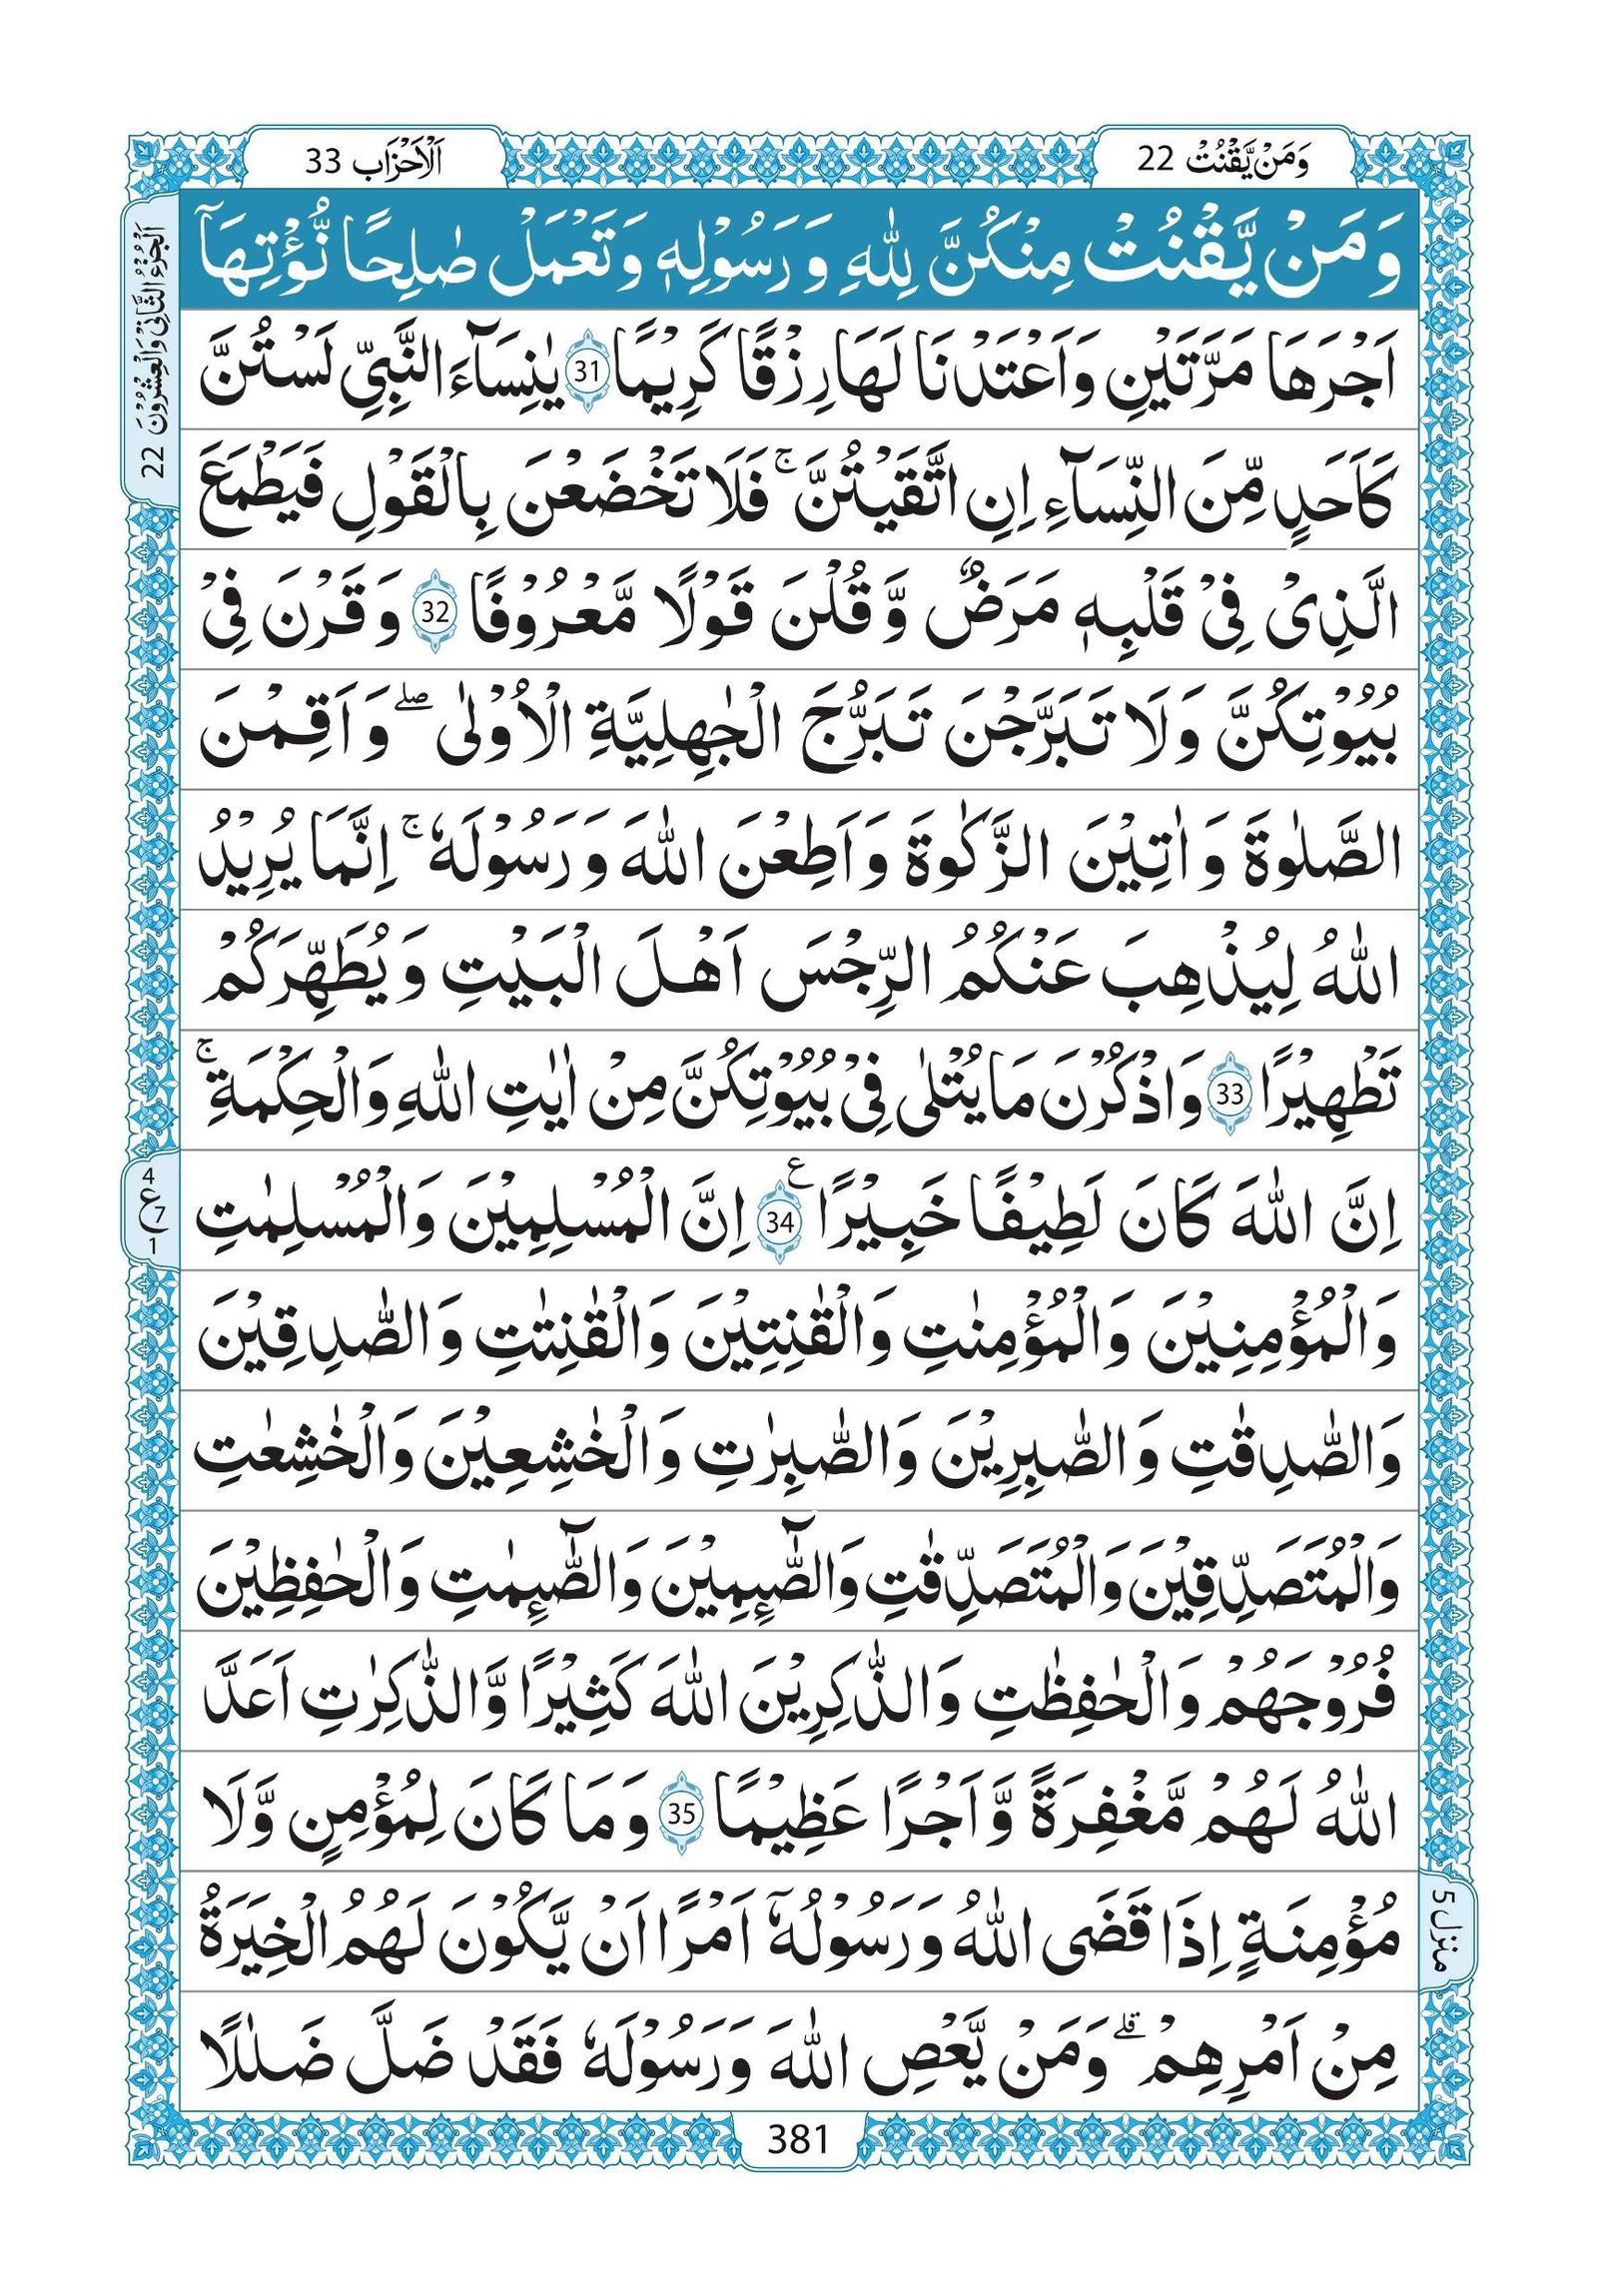 وَمَنْ يَّقْنُتْ 22
اَلْاَحْزَاب 33
اَلْجُزْءُ الثَّانِيْ وَالْعِشْرُوْنَ 22
وَمَنْ يَّقْنُتْ مِنْكُنَّ لِلّٰهِ وَرَسُوْلِهٖ وَتَعْمَلْ صٰلِحًا نُّؤْتِهَاۤ
اَجْرَهَا مَرَّتَيْنِ وَاَعْتَدْنَا لَهَا رِزْقًا كَرِيْمًا 31 يٰنِسَآءَ النَّبِيِّ لَسْتُنَّ
كَاَحَدٍ مِّنَ النِّسَآءِ اِنِ اتَّقَيْتُنَّ ۚ فَلَا تَخْضَعْنَ بِالْقَوْلِ فَيَطْمَعَ
الَّذِيْ فِيْ قَلْبِهٖ مَرَضٌ وَّقُلْنَ قَوْلًا مَّعْرُوْفًا 32 وَقَرْنَ فِيْ
بُيُوْتِكُنَّ وَلَا تَبَرَّجْنَ تَبَرُّجَ الْجٰهِلِيَّةِ الْاُوْلٰى ۖ وَاَقِمْنَ
الصَّلٰوةَ وَاٰتِيْنَ الزَّكٰوةَ وَاَطِعْنَ اللّٰهَ وَرَسُوْلَهٗ ۚ اِنَّمَا يُرِيْدُ
اللّٰهُ لِيُذْهِبَ عَنْكُمُ الرِّجْسَ اَهْلَ الْبَيْتِ وَيُطَهِّرَكُمْ
تَطْهِيْرًا 33 وَاذْكُرْنَ مَا يُتْلٰى فِيْ بُيُوْتِكُنَّ مِنْ اٰيٰتِ اللّٰهِ وَالْحِكْمَةِ ۚ
اِنَّ اللّٰهَ كَانَ لَطِيْفًا خَبِيْرًا 34 ع اِنَّ الْمُسْلِمِيْنَ وَالْمُسْلِمٰتِ
4 ع 7 1
وَالْمُؤْمِنِيْنَ وَالْمُؤْمِنٰتِ وَالْقٰنِتِيْنَ وَالْقٰنِتٰتِ وَالصّٰدِقِيْنَ
وَالصّٰدِقٰتِ وَالصّٰبِرِيْنَ وَالصّٰبِرٰتِ وَالْخٰشِعِيْنَ وَالْخٰشِعٰتِ
وَالْمُتَصَدِّقِيْنَ وَالْمُتَصَدِّقٰتِ وَالصَّآئِمِيْنَ وَالصّٰٓئِمٰتِ وَالْحٰفِظِيْنَ
فُرُوْجَهُمْ وَالْحٰفِظٰتِ وَالذّٰكِرِيْنَ اللّٰهَ كَثِيْرًا وَّالذّٰكِرٰتِ اَعَدَّ
اللّٰهُ لَهُمْ مَّغْفِرَةً وَّاَجْرًا عَظِيْمًا 35 وَمَا كَانَ لِمُؤْمِنٍ وَّلَا
مُؤْمِنَةٍ اِذَا قَضَى اللّٰهُ وَرَسُوْلُهٗۤ اَمْرًا اَنْ يَّكُوْنَ لَهُمُ الْخِيَرَةُ
منزل 5
مِنْ اَمْرِهِمْ ۗ وَمَنْ يَّعْصِ اللّٰهَ وَرَسُوْلَهٗ فَقَدْ ضَلَّ ضَلٰلًا
381